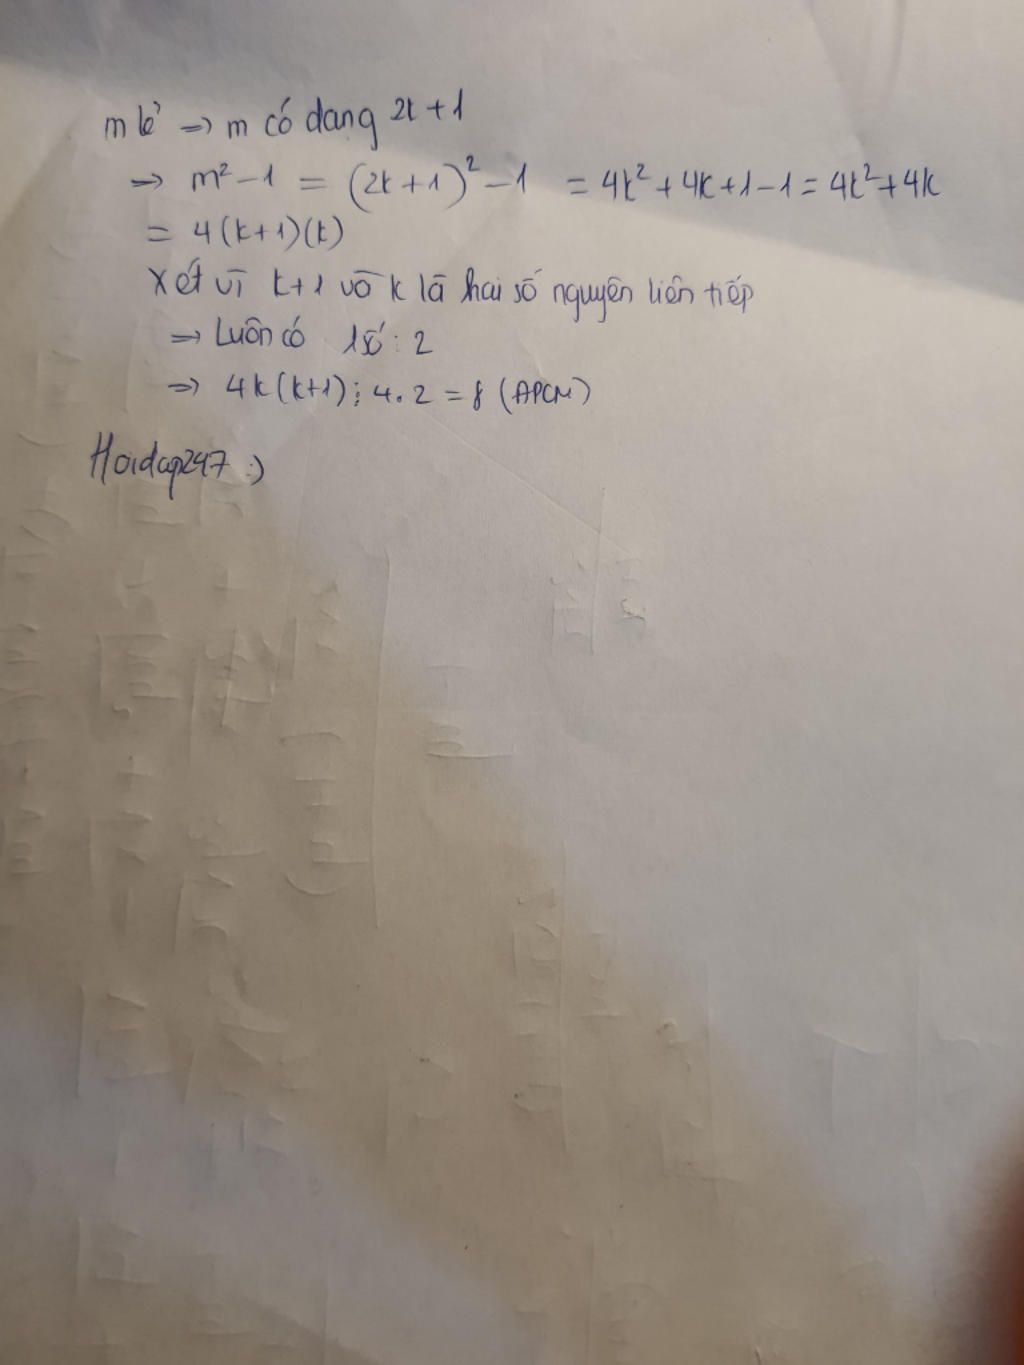 m lẻ => m có dạng 2k+1
=> m² - 1 = (2k+1)² - 1 = 4k² + 4k + 1 - 1 = 4k² + 4k
= 4(k+1)(k)
Xét vì k+1 và k là hai số nguyên liên tiếp
=> Luôn có 1 số ⋮ 2
=> 4k(k+1) ⋮ 4.2 = 8 (ĐPCM)
Hoidap247 :)